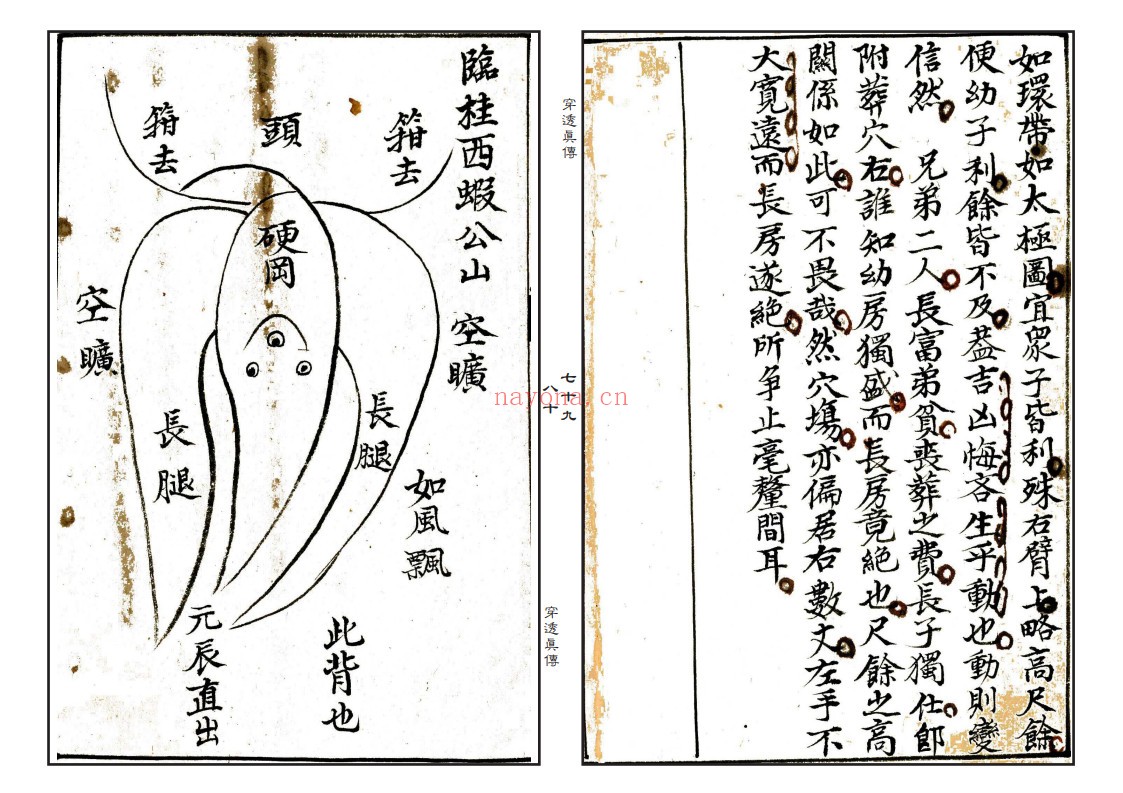 如環帶如太極圖宜眾子皆利殊右臂上略高尺餘
便幼子利餘皆不及蓋吉凶悔吝生乎動也動則變
信然　兄弟二人長富弟貧喪葬之費長子獨任即
附葬穴右誰知幼房獨盛而長房竟絕也尺餘之高
關係如此可不畏哉然穴塲亦偏居右數丈左手不
大寬遠而長房遂絕所争止毫釐間耳
穿透真傳
七十九
八十
穿透真傳
nayona.cn
臨桂西蝦公山
空曠
如風飄
此背也
頭
硬岡
長腿
長腿
空曠
元辰直出